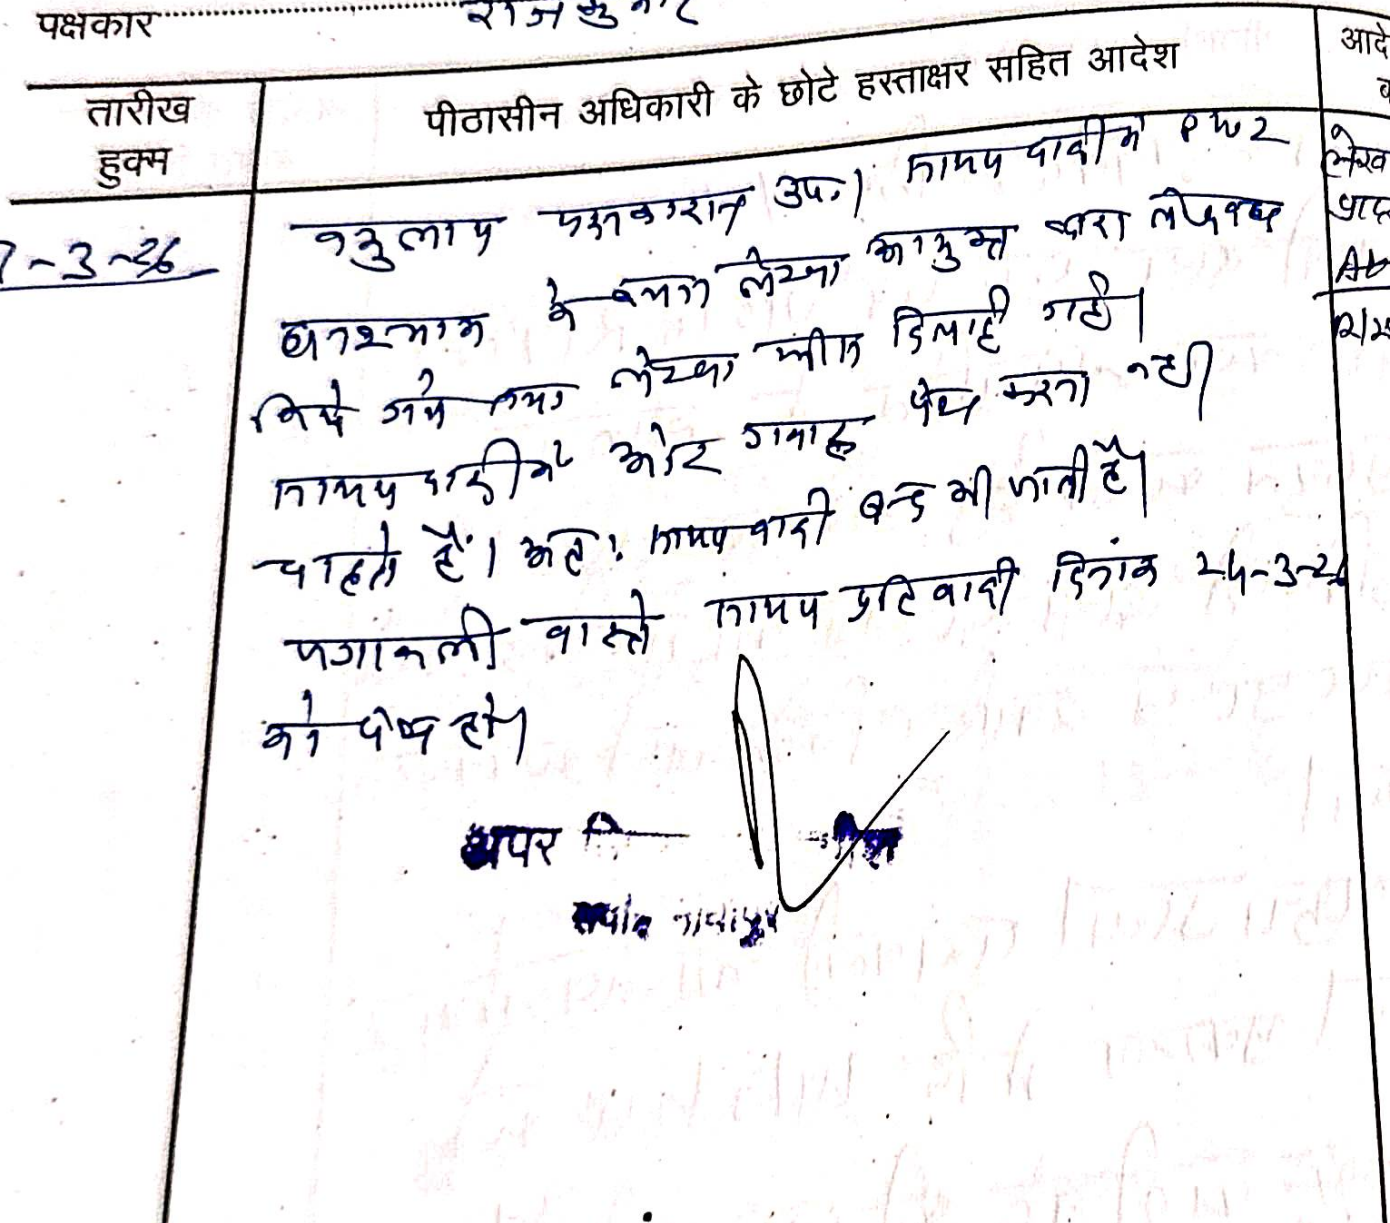 पक्षकार राजकुमार
तारीख हुक्म
पीठासीन अधिकारी के छोटे हस्ताक्षर सहित आदेश
आदे
7-3-26
वकुलाय पक्षकारान उप.। साक्ष्य वादी में PW2
घनश्याम के बयान लेखा आयुक्त द्वारा लेखबद्ध
किये गये तथा लेखा फीस दिलाई गई।
साक्ष्य वादी में और गवाह पेश करना नहीं
चाहते हैं। अतः साक्ष्य वादी बन्द की जाती है।
पत्रावली वास्ते साक्ष्य प्रतिवादी दिनांक 24-3-26
को पेश हो।
अपर